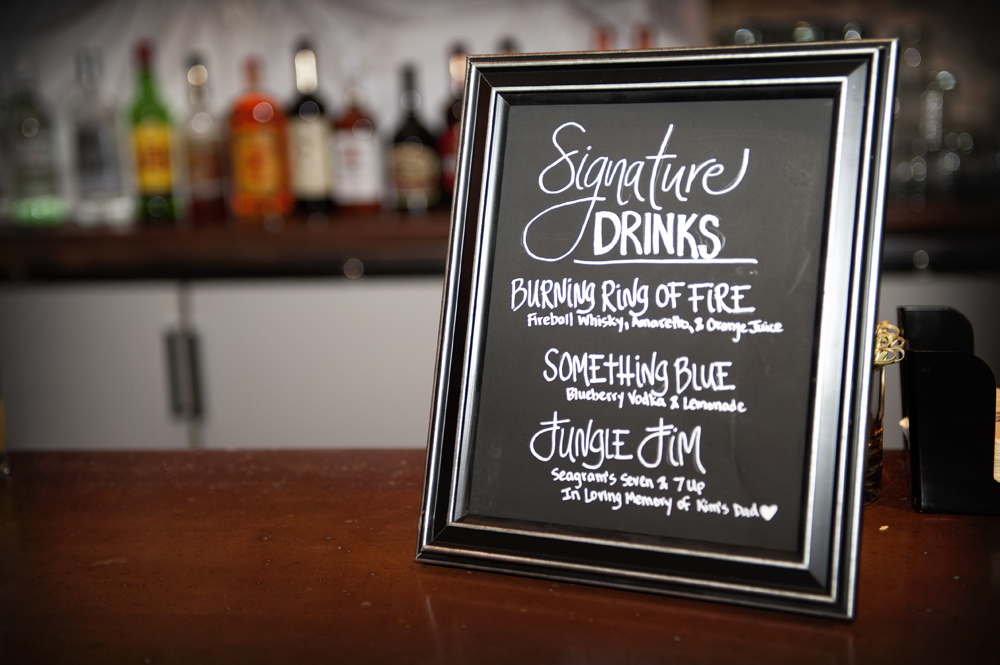 Signature
DRINKS
BURNING RING OF FIRE
Fireball Whisky, Amaretto, & Orange Juice
SOMETHING BLUE
Blueberry Vodka & Lemonade
JUNGLE JIM
Seagram's Seven & 7 Up
In Loving Memory of Kim's Dad